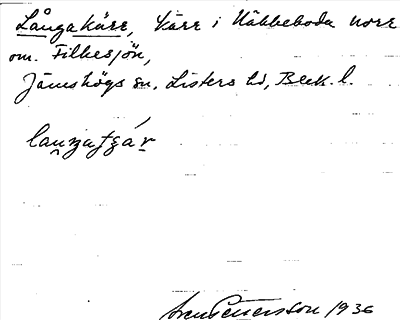 Långakärr, kärr i Näbbeboda norr
om. Filkesjön,
Jämshögs sn. Listers hd, Blek. l.
Sven Petersson 1936